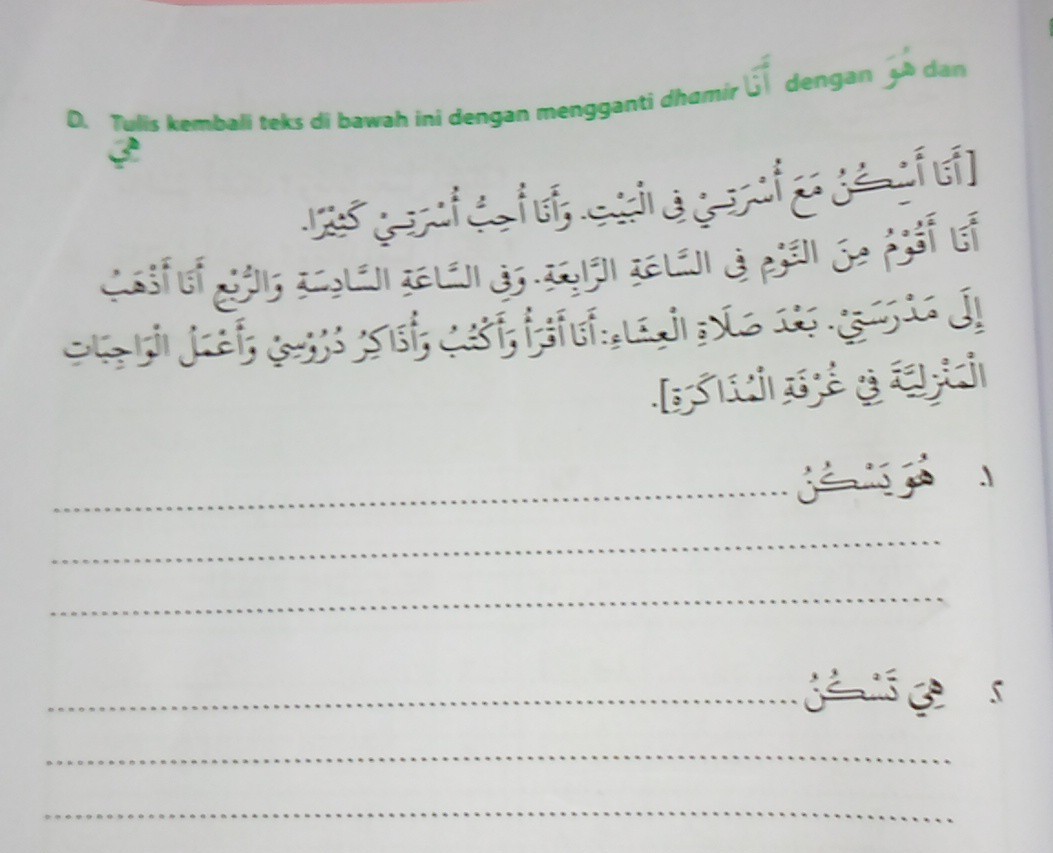 D. Tulis kembali teks di bawah ini dengan mengganti dhamir أَنَا dengan هُوَ dan
هِيَ
[أَنَا أَسْكُنُ مَعَ أُسْرَتِيْ فِى الْبَيْتِ. وَأَنَا أُحِبُّ أُسْرَتِيْ كَثِيْرًا.
أَنَا أَقُوْمُ مِنَ النَّوْمِ فِى السَّاعَةِ الرَّابِعَةِ. وَفِى السَّاعَةِ السَّادِسَةِ وَالرُّبْعِ أَنَا أَذْهَبُ
إِلَى مَدْرَسَتِيْ. بَعْدَ صَلَاةِ الْعِشَاءِ: أَنَا أَقْرَأُ وَأَكْتُبُ وَأُذَاكِرُ دُرُوْسِيْ وَأَعْمَلُ الْوَاجِبَاتِ
الْمَنْزِلِيَّةَ فِيْ غُرْفَةِ الْمُذَاكَرَةِ].
١. هُوَ يَسْكُنُ ........................................
........................................
........................................
٢. هِيَ تَسْكُنُ ........................................
........................................
........................................